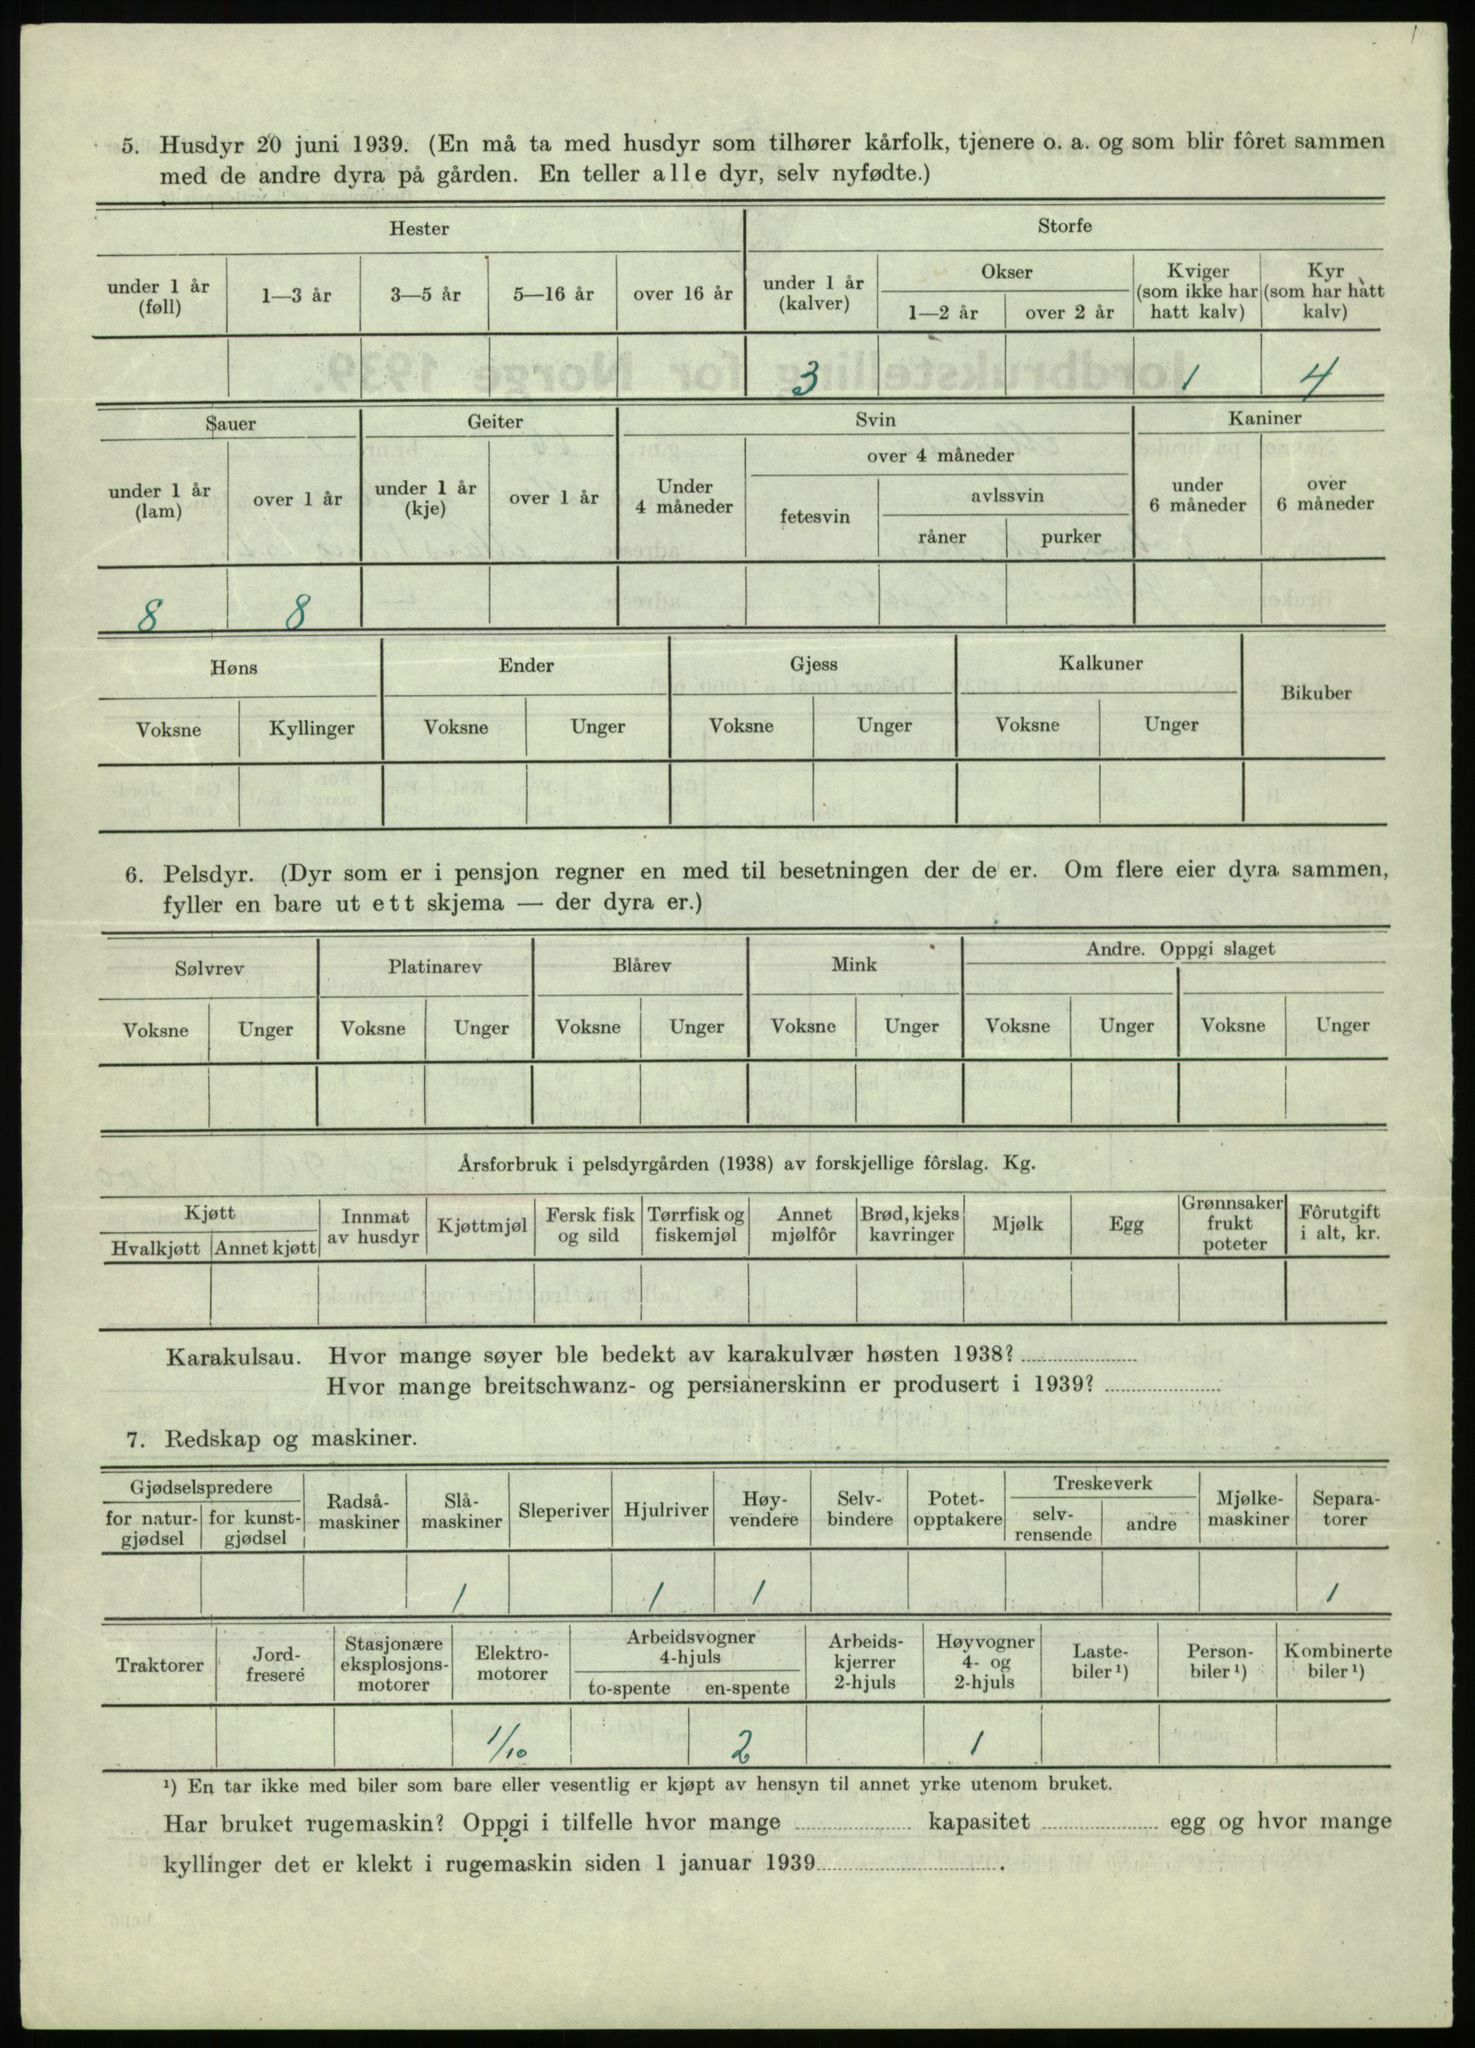 5. Husdyr 20 juni 1939. (En må ta med husdyr som tilhører kårfolk, tjenere o. a. og som blir fôret sammen
med de andre dyra på gården. En teller alle dyr, selv nyfødte.)
Hester
Storfe
under 1 år (føll)
1—3 år
3—5 år
5—16 år
over 16 år
under 1 år (kalver)
Okser
1—2 år
over 2 år
Kviger (som ikke har hatt kalv)
Kyr (som har hatt kalv)
3 1 4
Sauer
Geiter
Svin
Kaniner
under 1 år (lam)
over 1 år
under 1 år (kje)
over 1 år
Under 4 måneder
over 4 måneder
fetesvin
avlssvin
råner
purker
under 6 måneder
over 6 måneder
8 8
Høns
Ender
Gjess
Kalkuner
Bikuber
Voksne Kyllinger Voksne Unger Voksne Unger Voksne Unger
6. Pelsdyr. (Dyr som er i pensjon regner en med til besetningen der de er. Om flere eier dyra sammen,
fyller en bare ut ett skjema — der dyra er.)
Sølvrev
Platinarev
Blårev
Mink
Andre. Oppgi slaget
Voksne Unger Voksne Unger Voksne Unger Voksne Unger Voksne Unger Voksne Unger
Årsforbruk i pelsdyrgården (1938) av forskjellige fôrslag. Kg.
Kjøtt
Hvalkjøtt
Annet kjøtt
Innmat av husdyr
Kjøttmjøl
Fersk fisk og sild
Tørrfisk og fiskemjøl
Annet mjølfôr
Brød, kjeks kavringer
Mjølk
Egg
Grønnsaker frukt poteter
Fôrutgift i alt, kr.
Karakulsau. Hvor mange søyer ble bedekt av karakulvær høsten 1938?
Hvor mange breitschwanz- og persianerskinn er produsert i 1939?
7. Redskap og maskiner.
Gjødselspredere
for natur-gjødsel
for kunst-gjødsel
Radså-maskiner
Slå-maskiner
Sleperiver
Hjulriver
Høy-vendere
Selv-bindere
Potet-opptakere
Treskeverk
selv-rensende
andre
Mjølke-maskiner
Separa-torer
1 1 1 1
Traktorer
Jord-fresere
Stasjonære eksplosjons-motorer
Elektro-motorer
Arbeidsvogner 4-hjuls
to-spente
en-spente
Arbeids-kjerrer 2-hjuls
Høyvogner 4- og 2-hjuls
Laste-biler ¹)
Person-biler ¹)
Kombinerte biler ¹)
1/10 2 1
¹) En tar ikke med biler som bare eller vesentlig er kjøpt av hensyn til annet yrke utenom bruket.
Har bruket rugemaskin? Oppgi i tilfelle hvor mange kapasitet egg og hvor mange
kyllinger det er klekt i rugemaskin siden 1 januar 1939.